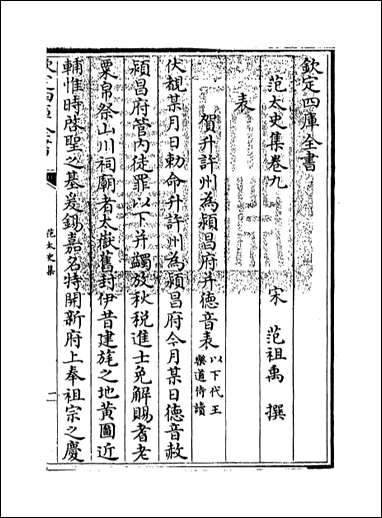 欽定四庫全書
范太史集卷九
宋 范祖禹 撰
表
賀升許州為潁昌府并德音表以下代王樂道侍讀
伏覩某月日勅命升許州為潁昌府今月某日德音赦
潁昌府管内徒罪以下并蠲放秋税進士免解賜耆老
粟帛祭山川祠廟者太嶽舊封伊昔建旄之地黄圖近
輔惟時啓聖之基爰錫嘉名特開新府上奉祖宗之慶
范太史集